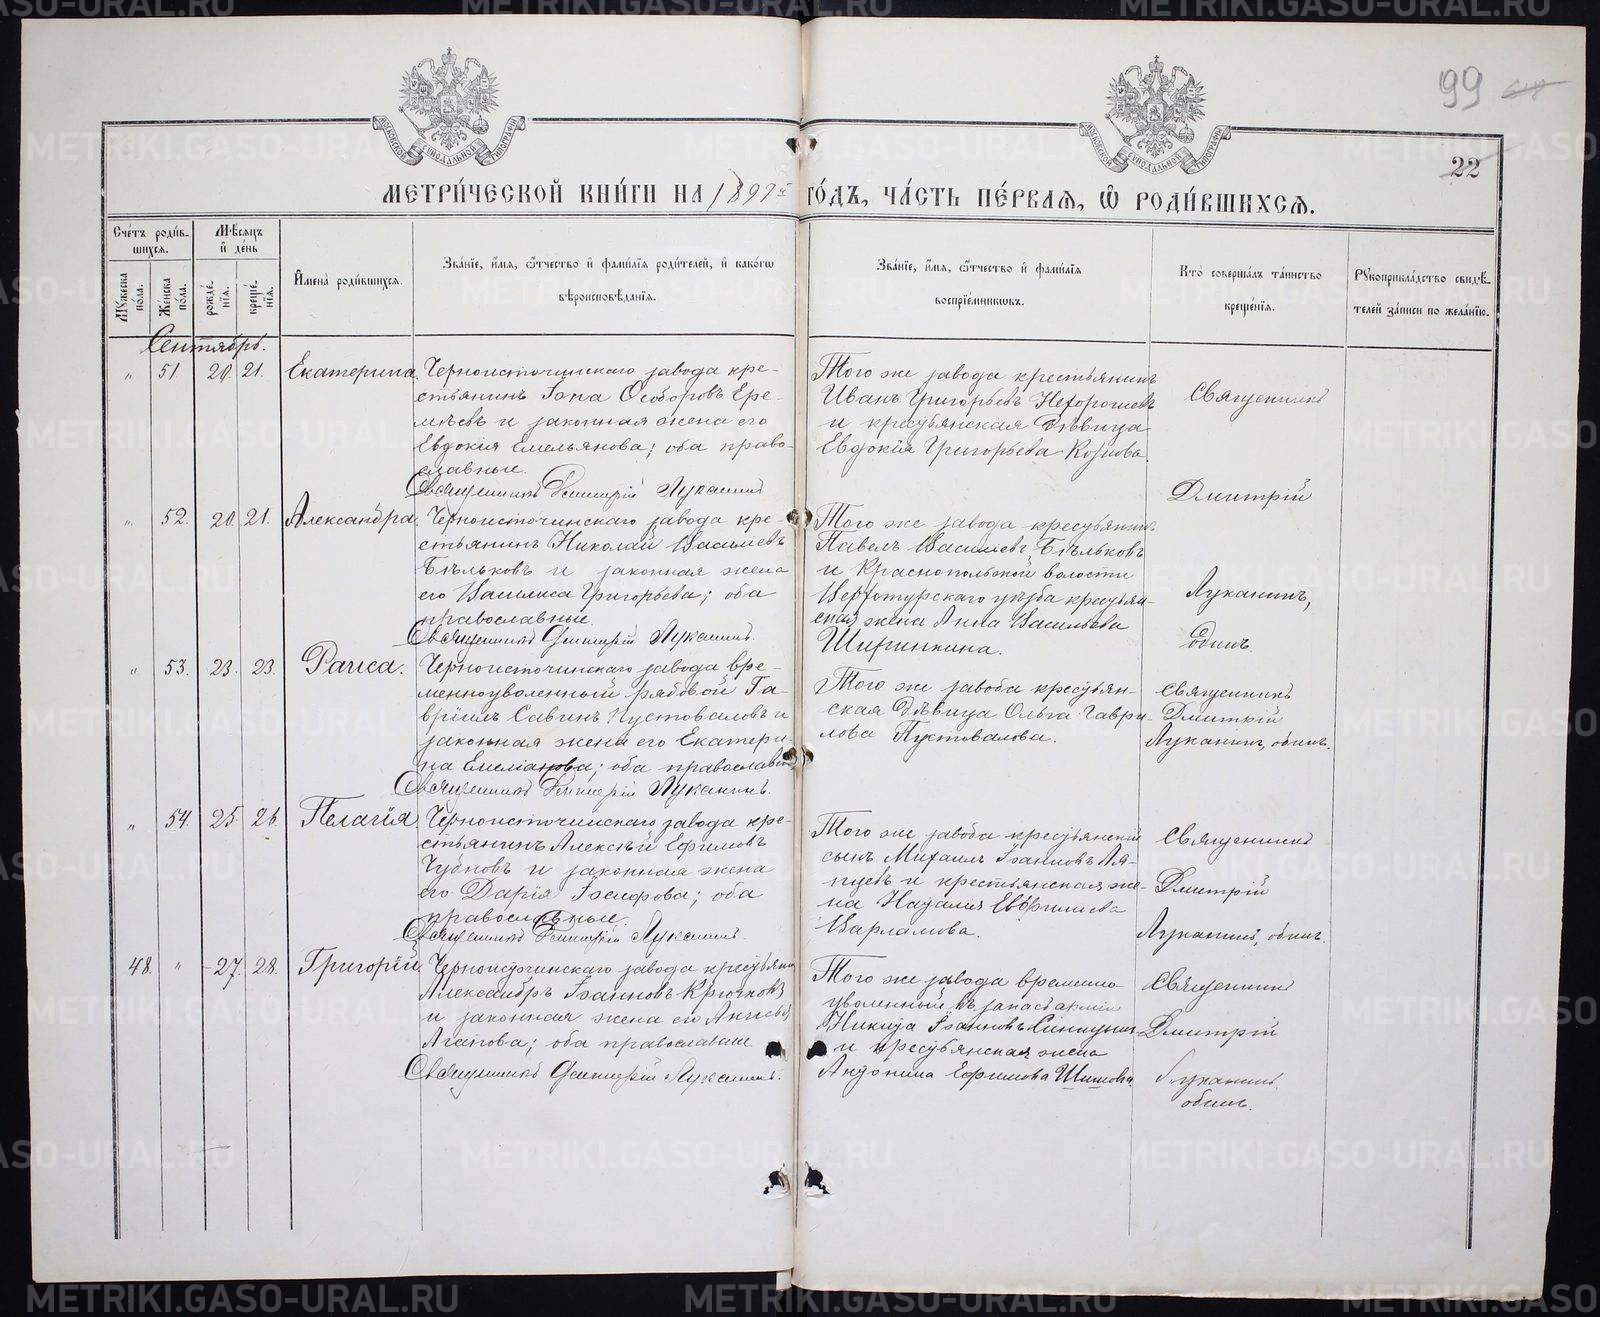 99
22
МОСКОВСКОЙ СѴНОДАЛЬНОЙ ТИПОГРАФІИ
МОСКОВСКОЙ СѴНОДАЛЬНОЙ ТИПОГРАФІИ
МЕТРИ́ЧЕСКОЙ КНИ́ГИ НА 1897й ГО́ДЪ, ЧА́СТЬ ПЕ́РВАѦ, Ѡ҆ РОДИ́ВШИХСѦ.
Сче́тъ роди́в-
шихсѧ.
Мꙋ́жеска
по́ла.
Же́нска
по́ла.
Мѣ́сѧцъ
и҆ де́нь
рожде́-
нїѧ.
креще́-
нїѧ.
И҆мена̀ роди́вшихсѧ.
Зва́нїе, и҆́мѧ, ѻ҆́тчество и҆ фами́лїѧ роди́телей, и҆ како́гѡ
вѣроисповѣ́данїѧ.
Зва́нїе, и҆́мѧ, ѻ҆́тчество и҆ фами́лїѧ
воспрїе́мникѡвъ.
Кто̀ соверша́лъ та́инство
креще́нїѧ.
Рꙋкоприкла́дство свидѣ́-
телей за́писи по жела́нїю.
Сентябрь.
„ 51. 20. 21. Екатерина.
Черноисточинскаго завода кре-
стьянинъ Іона Ѳеодоровъ Ере-
мѣевъ и законная жена его
Евдокія Емельянова; оба право-
славные.
Священникъ Димитрій Луканинъ
Того же завода крестьянинъ
Иванъ Григорьевъ Нехорошевъ
и крестьянская дѣвица
Евдокія Григорьева Козлова.
Священникъ
Дмитрій
„ 52. 20. 21. Александра.
Черноисточинскаго завода кре-
стьянинъ Николай Васильевъ
Бѣльковъ и законная жена
его Василиса Григорьева; оба
православные.
Священникъ Димитрій Луканинъ.
Того же завода крестьянинъ
Павелъ Васильевъ Бѣльковъ
и Краснопольской волости
Верхотурскаго уѣзда крестьян-
ская жена Анна Васильева
Ширинкина.
Луканинъ,
одинъ.
„ 53. 23. 23. Раиса.
Черноисточинскаго завода вре-
менноуволенный рядовой Га-
вріилъ Савинъ Пустоваловъ и
законная жена его Екатери-
на Емелианова; оба православны
Священникъ Димитрій Луканинъ.
Того же завода крестьян-
ская дѣвица Ольга Гаври-
лова Пустовалова.
Священникъ
Дмитрій
Луканинъ, одинъ.
„ 54. 25. 26. Пелагія.
Черноисточинскаго завода кре-
стьянинъ Алексѣй Ефимовъ
и законная жена
его Дарія; оба
православные.
Священникъ Димитрій Луканинъ.
Того же завода крестьянскій
сынъ Михаилъ Іоанновъ Ля-
пцевъ и крестьянская же-
на Наталія Евфимиева
Варламова.
Священникъ
Дмитрій
Луканинъ, одинъ.
48. „ 27. 28. Григорій.
Черноисточинскаго завода крестьянинъ
Александръ Іоанновъ Крючковъ
и законная жена его
Агапова; оба православные
Священникъ Димитрій Луканинъ.
Того же завода временно-
уволенный въ запасъ арміи
Никита Іоанновъ
и крестьянская жена
Андонина Ефимова Шишова
Священникъ
Дмитрій
Луканинъ,
одинъ.